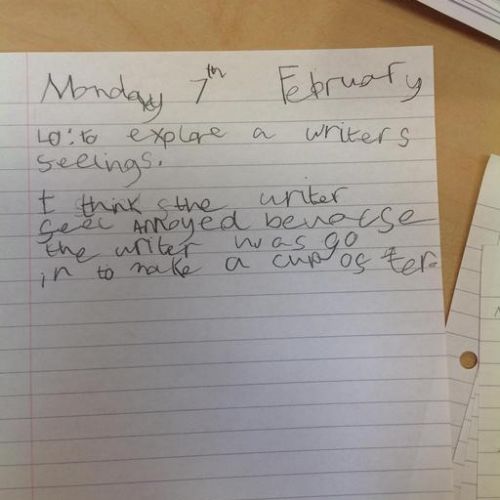 Monday 7th February
LO: to explore a writers
seelings.
I think sthe writer
seel Annoyed benacse
the writer was go
in to make a cup os ter.